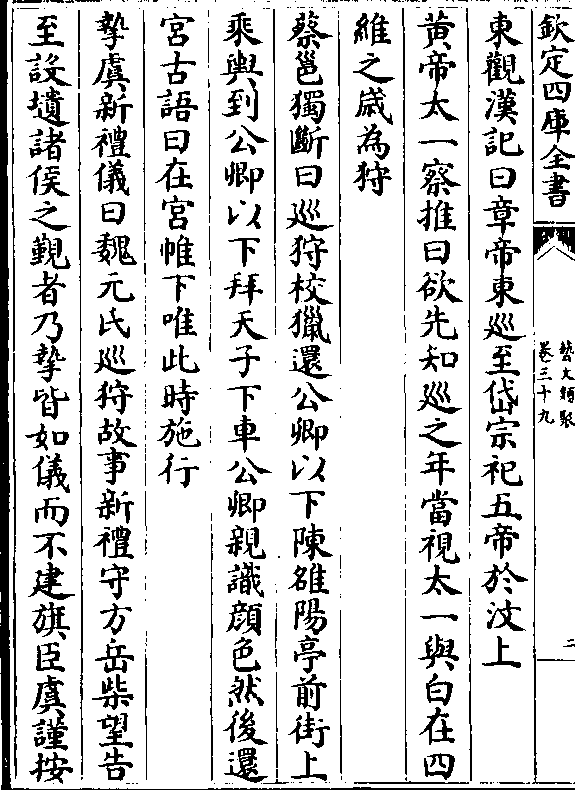 欽定四庫全書
藝文類聚
卷三十九
二
東觀漢記曰章帝東巡至岱宗祀五帝於汶上
黃帝太一察推曰欲先知巡之年當視太一與白在四
維之歲為狩
蔡邕獨斷曰巡狩校獵還公卿以下陳雒陽亭前街上
乘輿到公卿以下拜天子下車公卿親識顔色然後還
宮古語曰在宮帷下唯此時施行
摯虞新禮儀曰魏元氏巡狩故事新禮守方岳柴望告
至設壝諸侯之覲者乃摯皆如儀而不建旗臣虞謹按